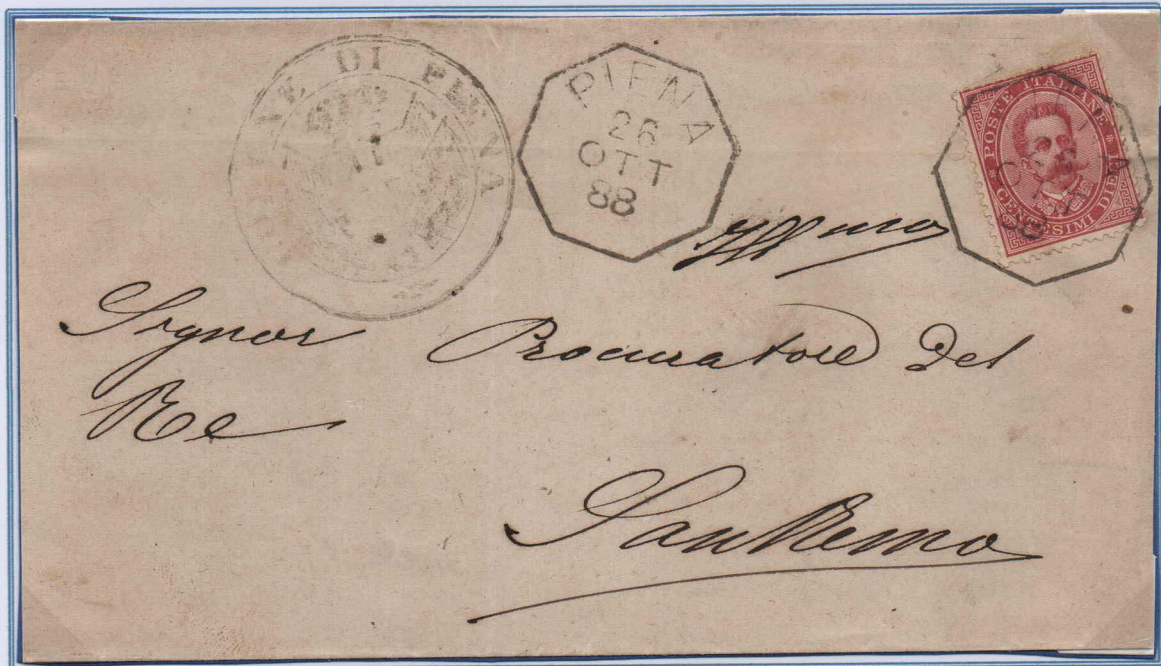 DI PIENA
PIENA
26
OTT
88
POSTE ITALIANE
CENTESIMI DIECI
Signor Procuratore del
Re
San Remo